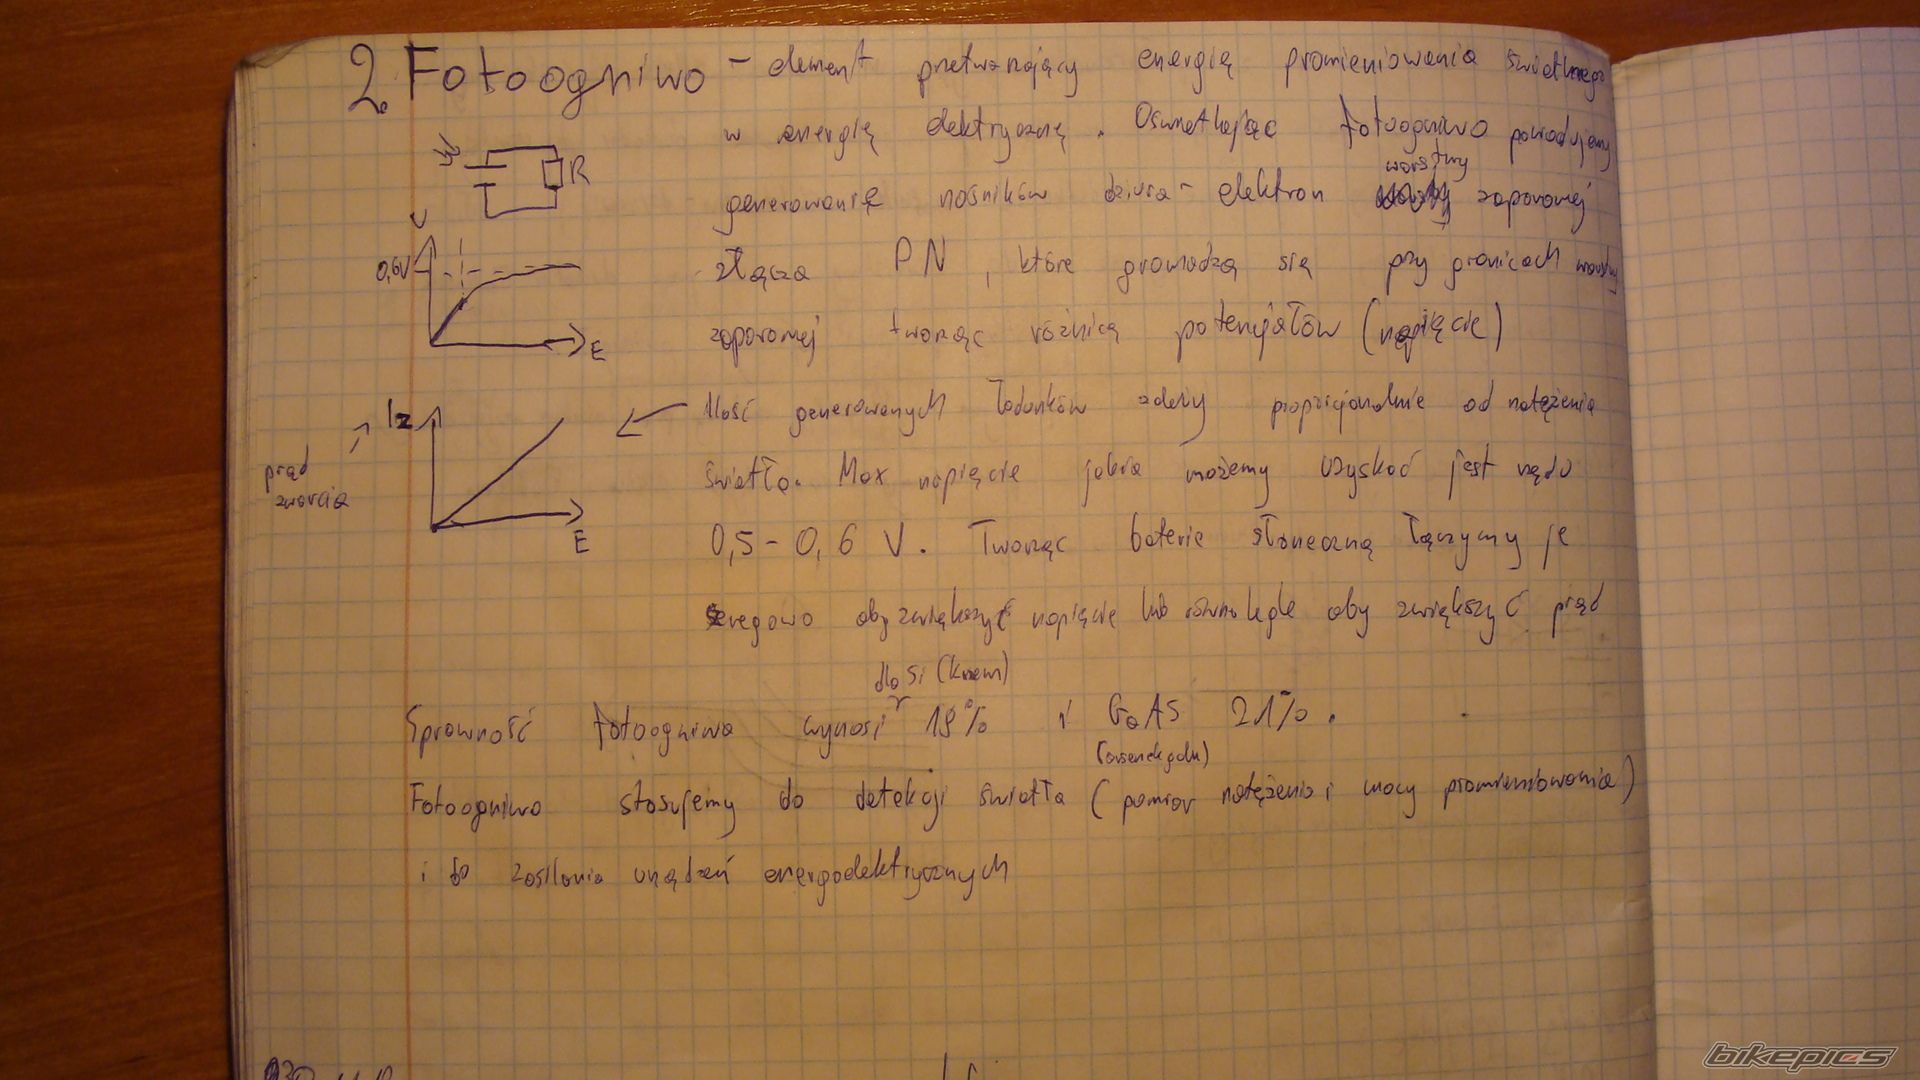 2. Fotoogniwo - element przetwarzający energię promieniowania świetlnego
w energię elektryczną. Oświetlając fotoogniwo powodujemy
generowanie nośników dziura - elektron warstwy zaporowej
złącza PN, które gromadzą się przy granicach warstwy
zaporowej tworząc różnicą potencjałów (napięcie)
R
U
0,6V
E
Iz
prąd
zwarcia
E
Ilość generowanych ładunków zależy proporcjonalnie od natężenia
światła. Max napięcie jakie możemy uzyskać jest rzędu
0,5 - 0,6 V. Tworząc baterie słoneczną łączymy je
szeregowo aby zwiększyć napięcie lub równolegle aby zwiększyć prąd
dla Si (krzem)
Sprawność fotoogniwa wynosi 18% i GaAS 21%.
(arsenek galu)
Fotoogniwo stosujemy do detekcji światła (pomiar natężenia i mocy promieniowania)
i do zasilania urządzeń energoelektrycznych
bikepics